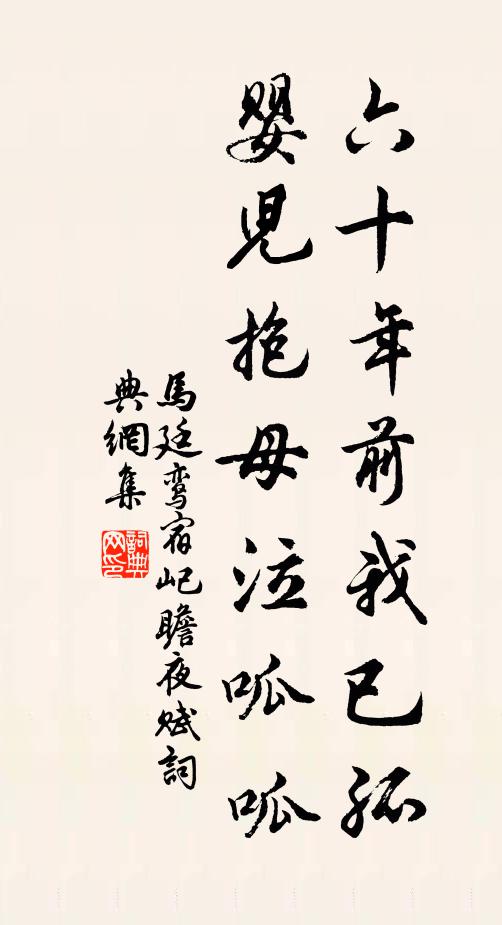 六十年前我已孤
嬰児抱母泣呱呱
馬廷鸾宿屺瞻夜赋詞
典網集
詞典
网印